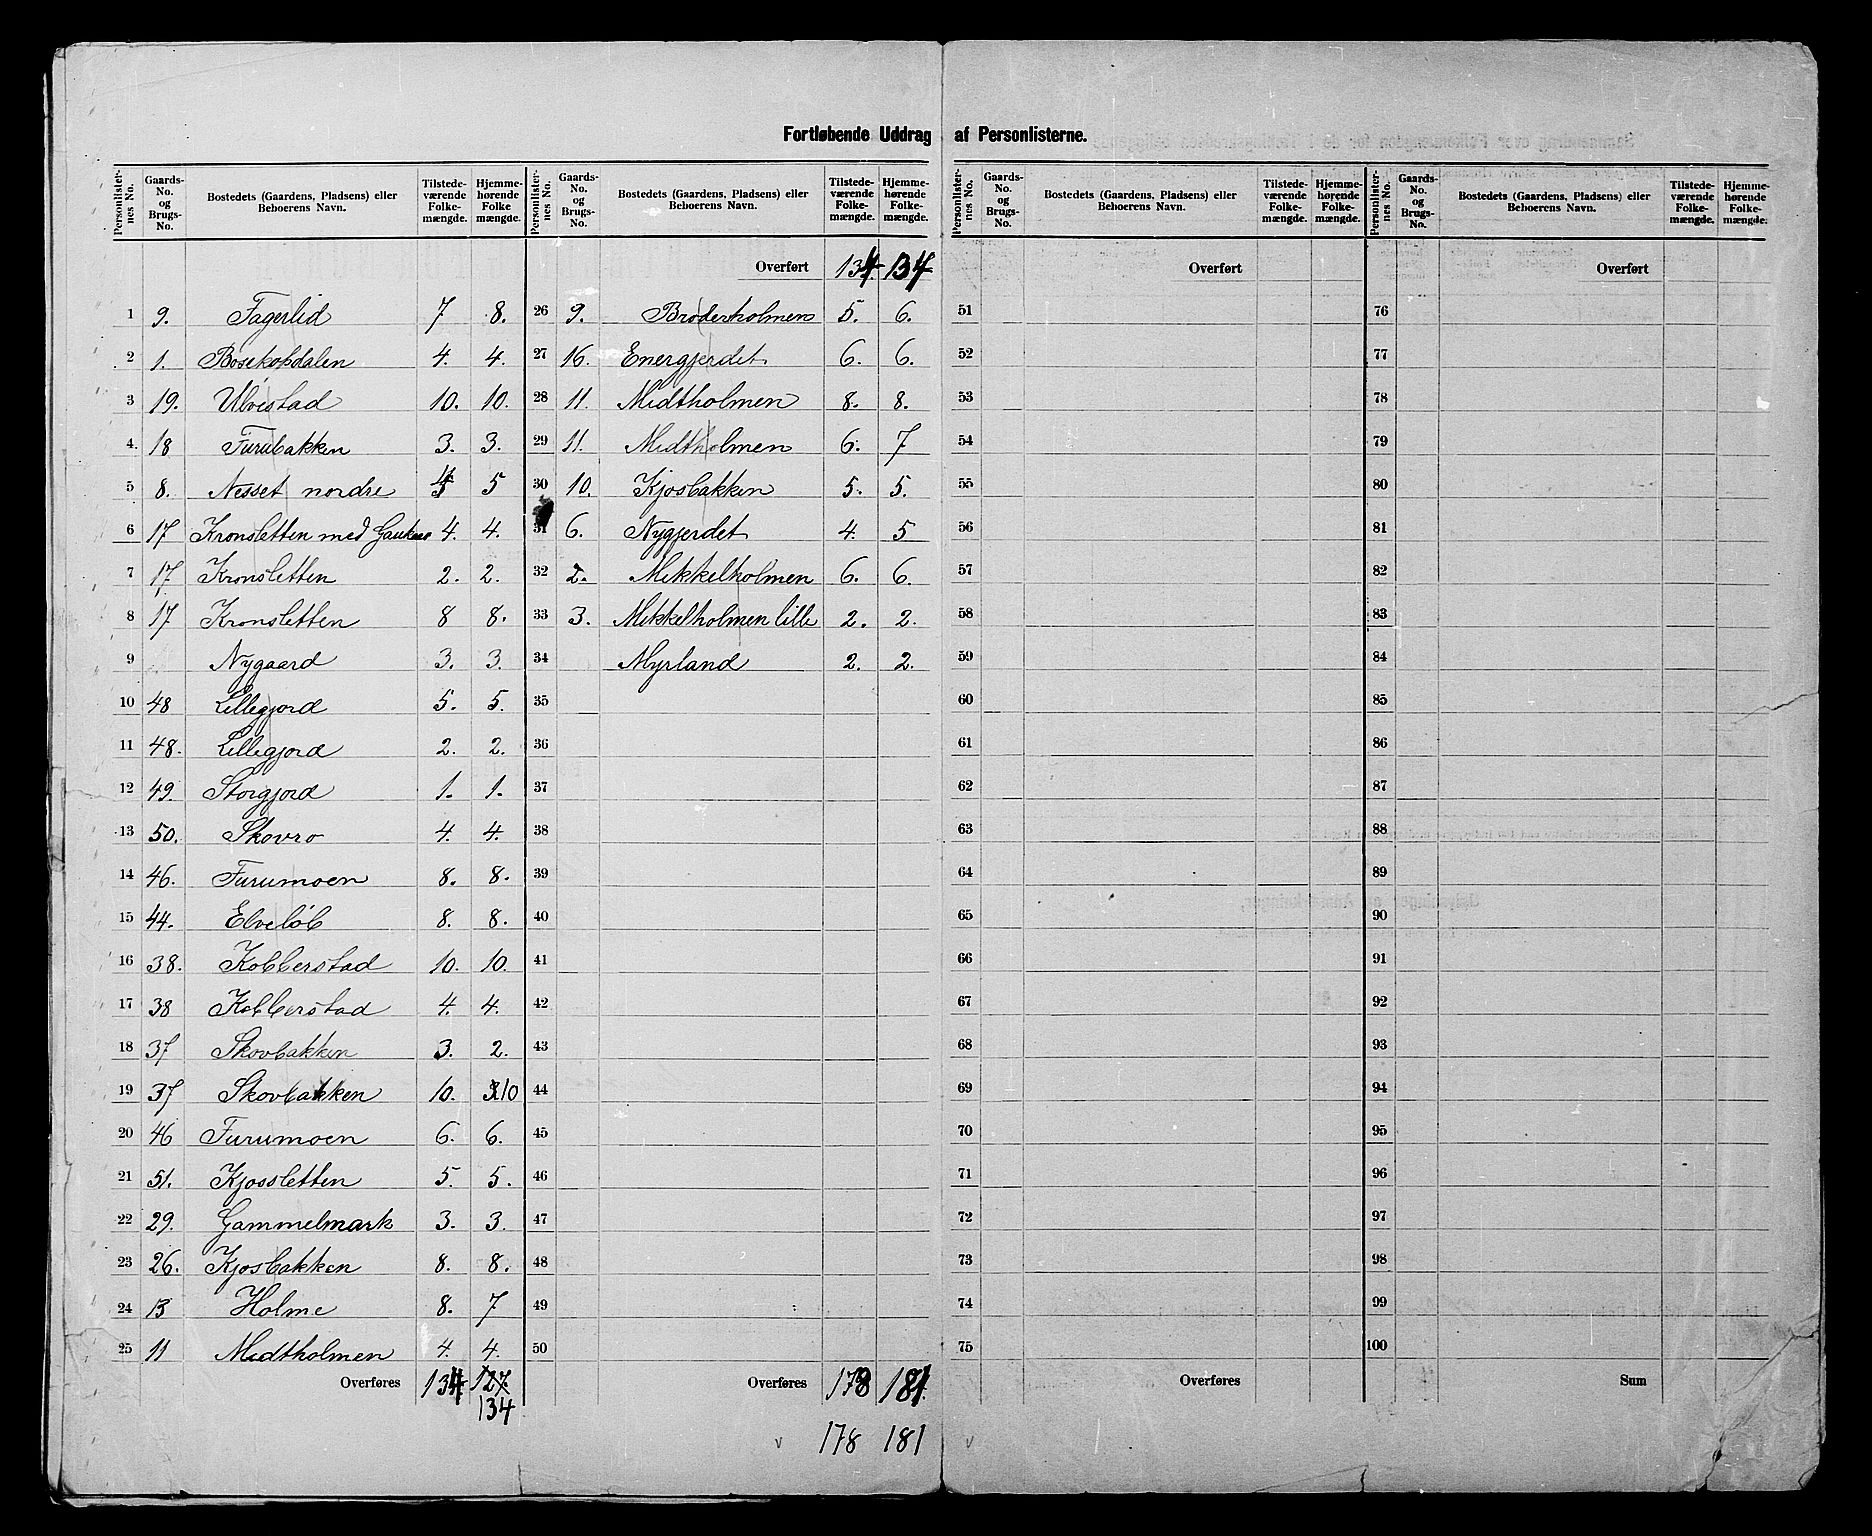 Fortløbende Uddrag af Personlisterne.
Personlister- nes No. | Gaards- No. og Brugs- No. | Bostedets (Gaardens, Pladsens) eller Beboerens Navn. | Tilstede- værende Folke- mængde. | Hjemme- hørende Folke mængde.
1 9. Fagerlid 7 8.
2 1. Bosekopdalen 4. 4.
3 19. Ulvestad 10. 10.
4. 18 Furubakken 3. 3.
5 8. Nesset nordre 4 5
6 17 Kronsletten med 4. 4.
7 17. Kronsletten 2. 2.
8 17 Kronsletten 8 8.
9 Nygaard 3. 3.
10 48 Lillegjord 5. 5.
11 48. Lillegjord 2. 2.
12 49. Storgjord 1. 1.
13 50. Skovro 4. 4.
14 46. Furumoen 8. 8.
15 44. Elveløb 8. 8.
16 38. Kobberstad 10. 10.
17 38 Kobberstad 4. 4.
18 37 Skovbakken 3. 2.
19 37 Skovbakken 10. 10
20 46 Furumoen 6. 6.
21 51. Kjossletten 5. 5.
22 29. Gammelmark 3. 3.
23 26. Kjosbakken 8. 8.
24 13 Holme 8. 7
25 11 Midtholmen 4. 4.
Overføres 134. 127.
134
Personlister- nes No. | Gaards- No. og Brugs- No. | Bostedets (Gaardens, Pladsens) eller Beboerens Navn. | Tilstede- værende Folke- mængde. | Hjemme- hørende Folke- mængde.
Overført 134. 134
26 9. Broderholmen 5. 6.
27 16. Energjerdet 6. 6.
28 11. Midtholmen 8. 8.
29 11. Midtholmen 6. 7
30 10. Kjosbakken 5. 5.
31 6. Nygjerdet 4. 5
32 2. Mikkelholmen 6. 6.
33 3. Mikkelholmen lille 2. 2.
34 Myrland 2. 2.
35
36
37
38
39
40
41
42
43
44
45
46
47
48
49
50
Overføres 178 181
178 181
Personlister- nes No. | Gaards- No. og Brugs- No. | Bostedets (Gaardens, Pladsens) eller Beboerens Navn. | Tilstede- værende Folke- mængde. | Hjemme- hørende Folke- mængde.
Overført
51
52
53
54
55
56
57
58
59
60
61
62
63
64
65
66
67
68
69
70
71
72
73
74
75
Overføres
Personlister- nes No. | Gaards- No. og Brugs- No. | Bostedets (Gaardens, Pladsens) eller Beboerens Navn. | Tilstede- værende Folke- mængde. | Hjemme- hørende Folke- mængde.
Overført
76
77
78
79
80
81
82
83
84
85
86
87
88
89
90
91
92
93
94
95
96
97
98
99
100
Sum